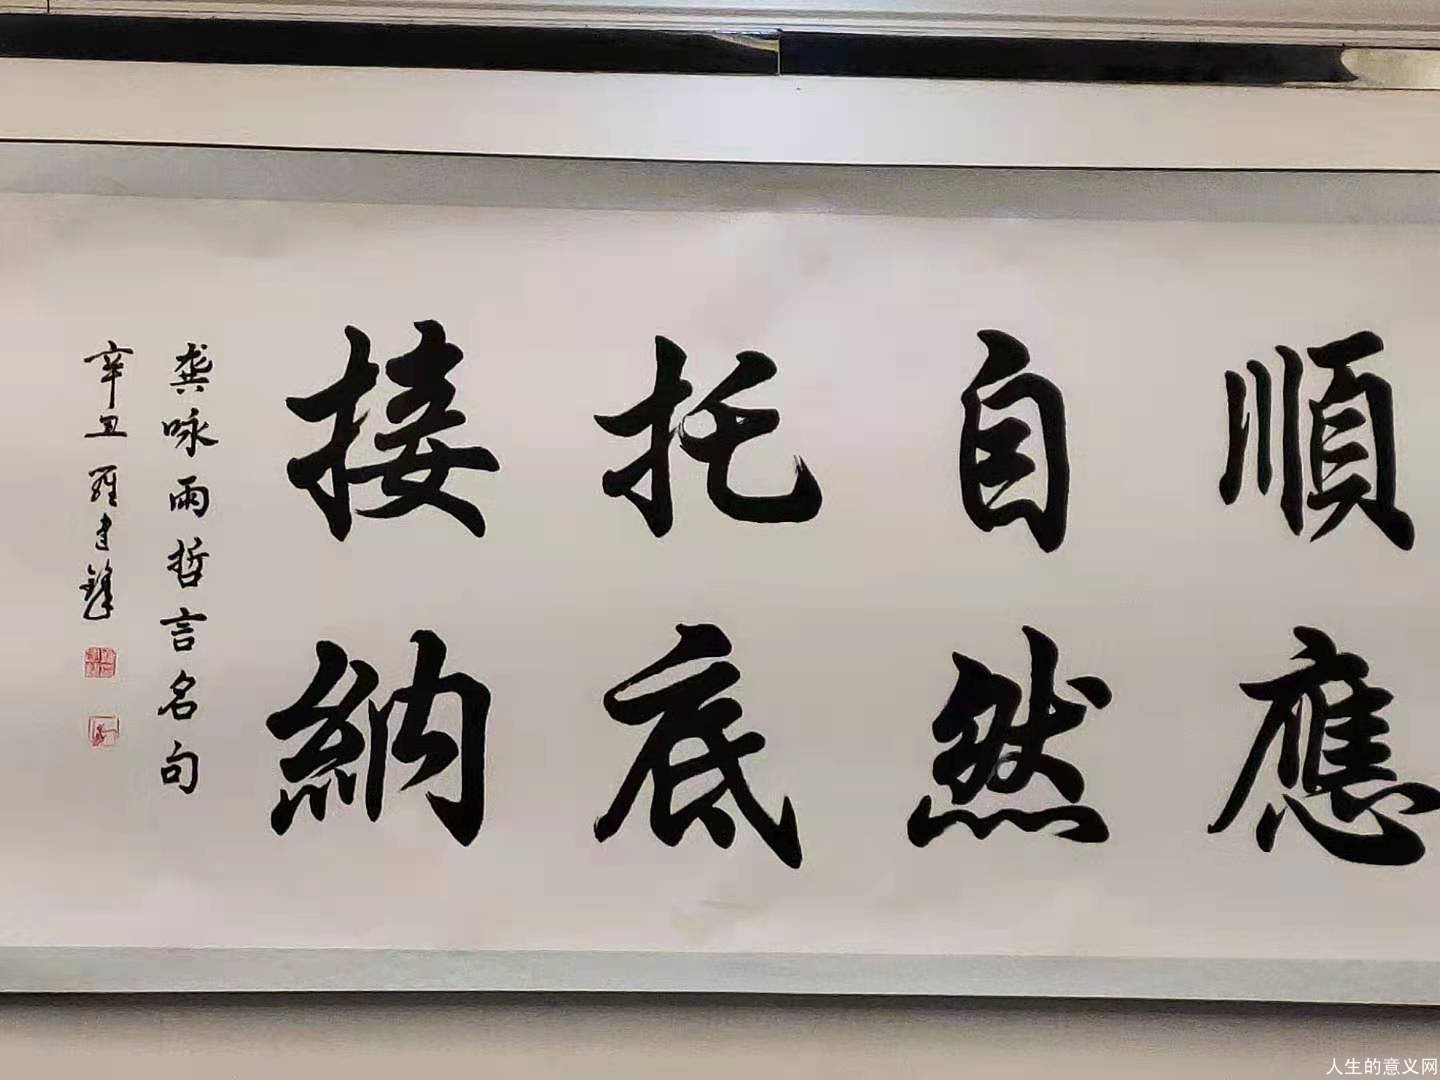 順應
自然
托底
接納
龚咏雨哲言名句
辛丑 羅建鋒
人生的意义网